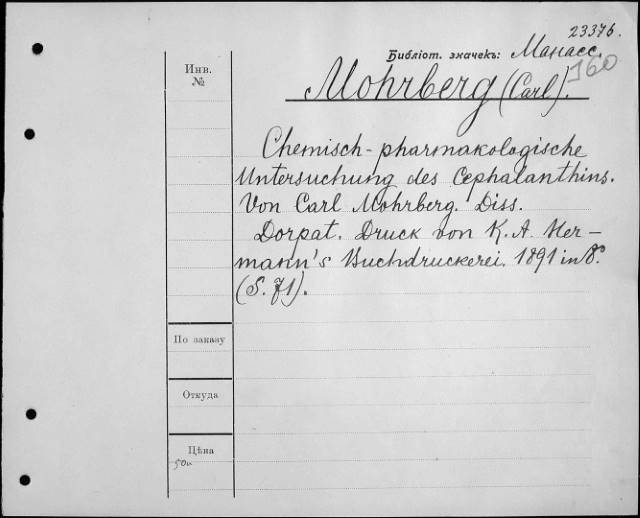 23376.
Библіот. значекъ: Манасс.
160
Инв.
№
Mohrberg (Carl).
Chemisch-pharmakologische
Untersuchung des Cephalanthins.
Von Carl Mohrberg. Diss.
Dorpat. Druck von K. A. Her-
mann's Buchdruckerei. 1891 in 8°.
(S. 71).
По заказу
Откуда
Цѣна
50к